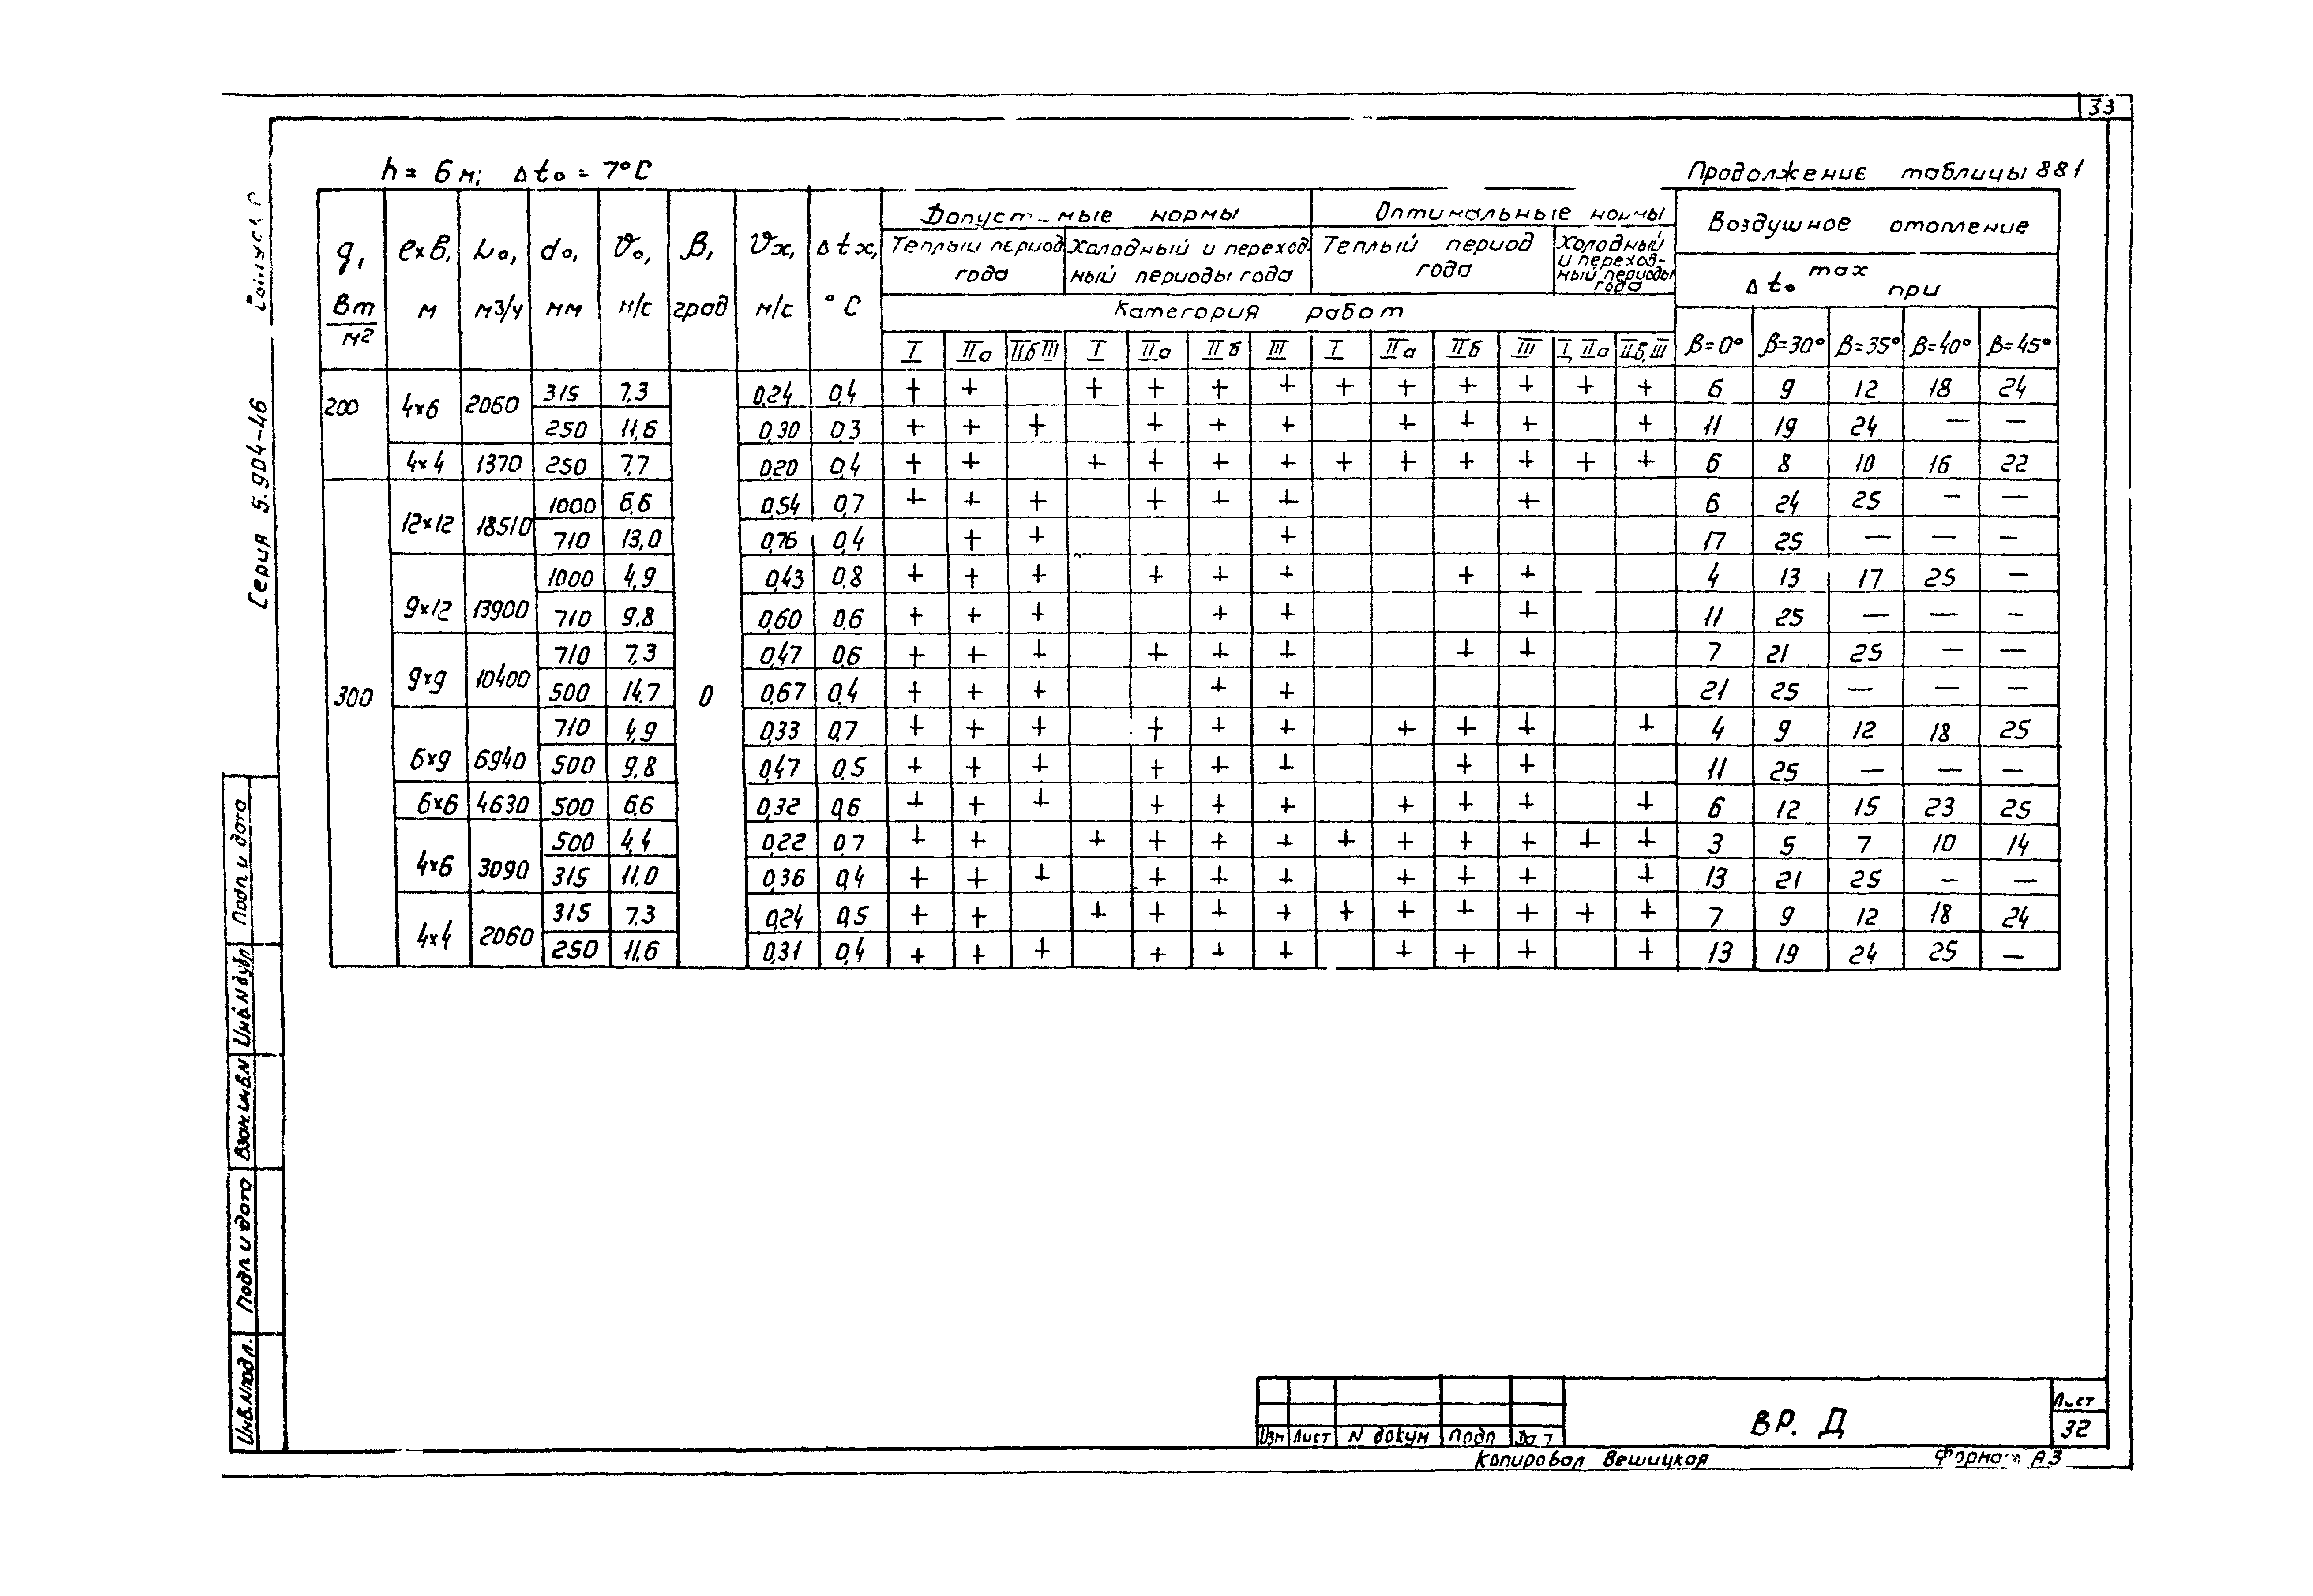 33
h = 6 м; Δt₀ = 7°C
Продолжение таблицы 881
Серия 5.904-46
q, Вт/м² | ℓ×в, м | L₀, м3/ч | d₀, мм | v₀, м/с | β, град | vx, м/с | Δtx, °C | нормы | Оптимальные нормы | Воздушное отопление
Теплый период года | Холодный и переходный периоды года | Теплый период года | Холодный и переходный периоды года | Δt₀ max при
Категория работ
I | IIа | IIб III | I | IIа | IIб | III | I | IIа | IIб | III | I, IIа | IIб, III | β=0° | β=30° | β=35° | β=40° | β=45°
200 | 4×6 | 2060 | 315 | 7,3 | | 0,24 | 0,4 | + | + | | + | + | + | + | + | + | + | + | + | + | 6 | 9 | 12 | 18 | 24
250 | 11,6 | | 0,30 | 0,3 | + | + | + | | + | + | + | | + | + | + | | + | 11 | 19 | 24 | — | —
4×4 | 1370 | 250 | 7,7 | | 0,20 | 0,4 | + | + | | + | + | + | + | + | + | + | + | + | + | 6 | 8 | 10 | 16 | 22
300 | 12×12 | 18510 | 1000 | 6,6 | 0 | 0,54 | 0,7 | + | + | + | | + | + | + | | | | + | | | 6 | 24 | 25 | — | —
710 | 13,0 | | 0,76 | 0,4 | | + | + | | | | + | | | | | | | 17 | 25 | — | — | —
9×12 | 13900 | 1000 | 4,9 | | 0,43 | 0,8 | + | + | + | | + | + | + | | | + | + | | | 4 | 13 | 17 | 25 | —
710 | 9,8 | | 0,60 | 0,6 | + | + | + | | | + | + | | | | + | | | 11 | 25 | — | — | —
9×9 | 10400 | 710 | 7,3 | | 0,47 | 0,6 | + | + | + | | + | + | + | | | + | + | | | 7 | 21 | 25 | — | —
500 | 14,7 | | 0,67 | 0,4 | + | + | + | | | + | + | | | | | | | 21 | 25 | — | — | —
6×9 | 6940 | 710 | 4,9 | | 0,33 | 0,7 | + | + | + | | + | + | + | | + | + | + | | + | 4 | 9 | 12 | 18 | 25
500 | 9,8 | | 0,47 | 0,5 | + | + | + | | + | + | + | | | + | + | | | 11 | 25 | — | — | —
6×6 | 4630 | 500 | 6,6 | | 0,32 | 0,6 | + | + | + | | + | + | + | | + | + | + | | + | 6 | 12 | 15 | 23 | 25
4×6 | 3090 | 500 | 4,4 | | 0,22 | 0,7 | + | + | | + | + | + | + | + | + | + | + | + | + | 3 | 5 | 7 | 10 | 14
315 | 11,0 | | 0,36 | 0,4 | + | + | + | | + | + | + | | + | + | + | | + | 13 | 21 | 25 | — | —
4×4 | 2060 | 315 | 7,3 | | 0,24 | 0,5 | + | + | | + | + | + | + | + | + | + | + | + | + | 7 | 9 | 12 | 18 | 24
250 | 11,6 | | 0,31 | 0,4 | + | + | + | | + | + | + | | + | + | + | | + | 13 | 19 | 24 | 25 | —
Инв. N подл. | Подп. и дата | Взам. инв. N | Инв. N дубл | Подп. и дата
Изм | Лист | N докум | Подп
ВР. Д
Лист
32
Копировал Вешицкая
Формат А3